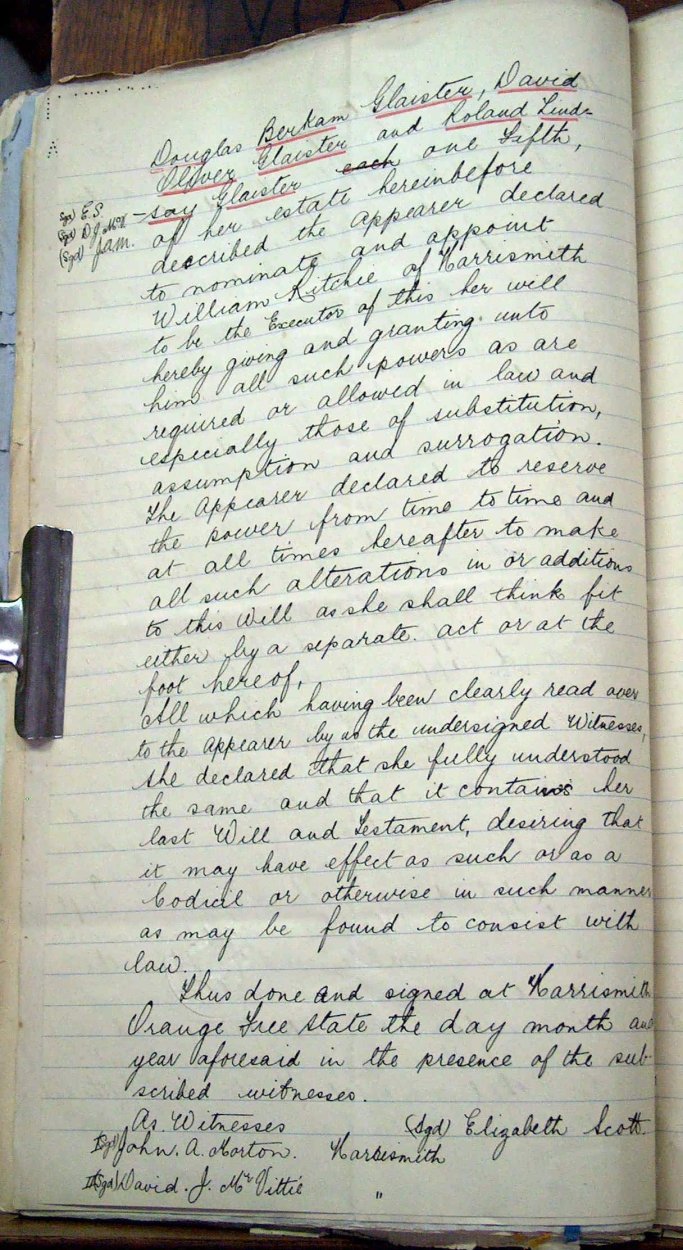 Douglas Bertram Glaister, David
Oliver Glaister and Roland Lind-
(Sgd) E.S.
(Sgd) D.J. McV
(Sgd) J.A.M.
-say Glaister each one Fifth,
of her estate hereinbefore
described the appearer declared
to nominate and appoint
William Ritchie of Harrismith
to be the Executor of this her will
hereby giving and granting unto
him all such powers as are
required or allowed in law and
especially those of substitution,
assumption and surrogation.
The Appearer declared to reserve
the power from time to time and
at all times hereafter to make
all such alterations in or additions
to this Will as she shall think fit
either by a separate. act or at the
foot hereof,
All which having been clearly read over
to the Appearer by us the undersigned Witnesses,
she declared that she fully understood
the same and that it contains her
last Will and Testament, desiring that
it may have effect as such or as a
Codicil or otherwise in such manner
as may be found to consist with
law.
Thus done and signed at Harrismith
Orange Free State the day month and
year aforesaid in the presence of the sub-
scribed witnesses.
As Witnesses (Sgd) Elizabeth Scott.
I (Sgd) John. A. Morton. Harrismith
II (Sgd) David. J. McVittie "